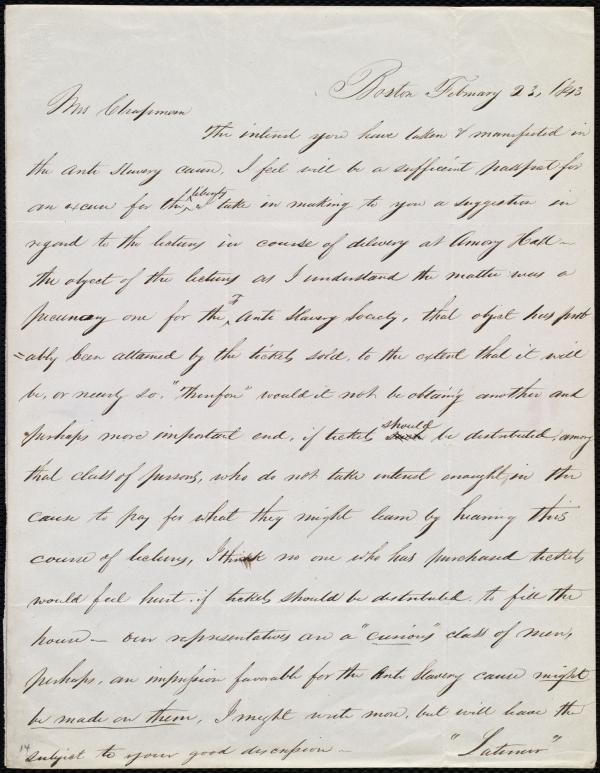 Boston February 23, 1843
Mrs Chapman
The interest you have taken & manifested in
the anti slavery cause, I feel will be a sufficient passport for
an excuse for the liberty I take in making to you a suggestion in
regard to the lectures in course of delivery at Amory Hall -
the object of the lectures as I understand the matter was a
pecuniary one for the Anti Slavery Society, that object has prob
=ably been attained by the tickets sold, to the extent that it will
be, or nearly so. "Therefore" would it not be obtaing another and
perhaps more important end, if tickets should be distributed, among
that class of persons, who do not take interest enought, in the
cause to pay for what they might learn by hearing this
course of lectures, I think no one who has purchased tickets
would feel hurt. if tickets should be distributed to fill the
house - our representatives are a "curious" class of men,
perhaps, an impression favorable for the Anti Slavery cause might
be made on them, I might write more, but will leave the
subject to your good discresion -
"Latimer"
14